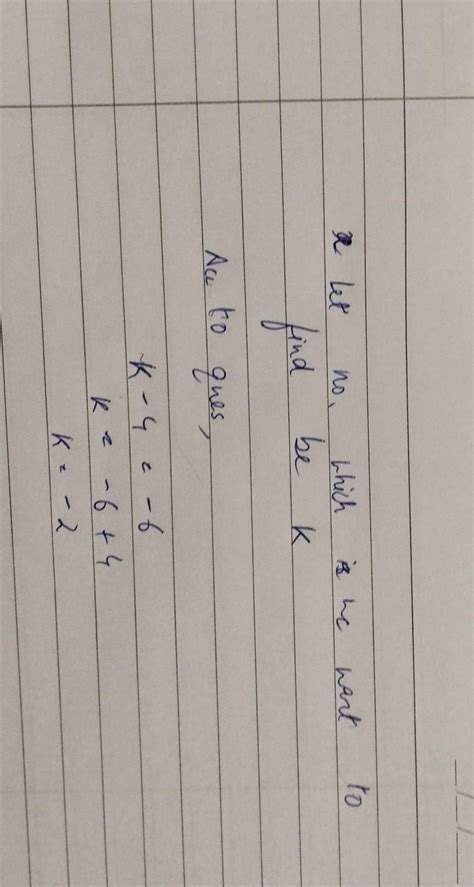 let no. which is we want to
find be K
Acc to ques,
K - 4 = -6
K = -6 + 4
K = -2